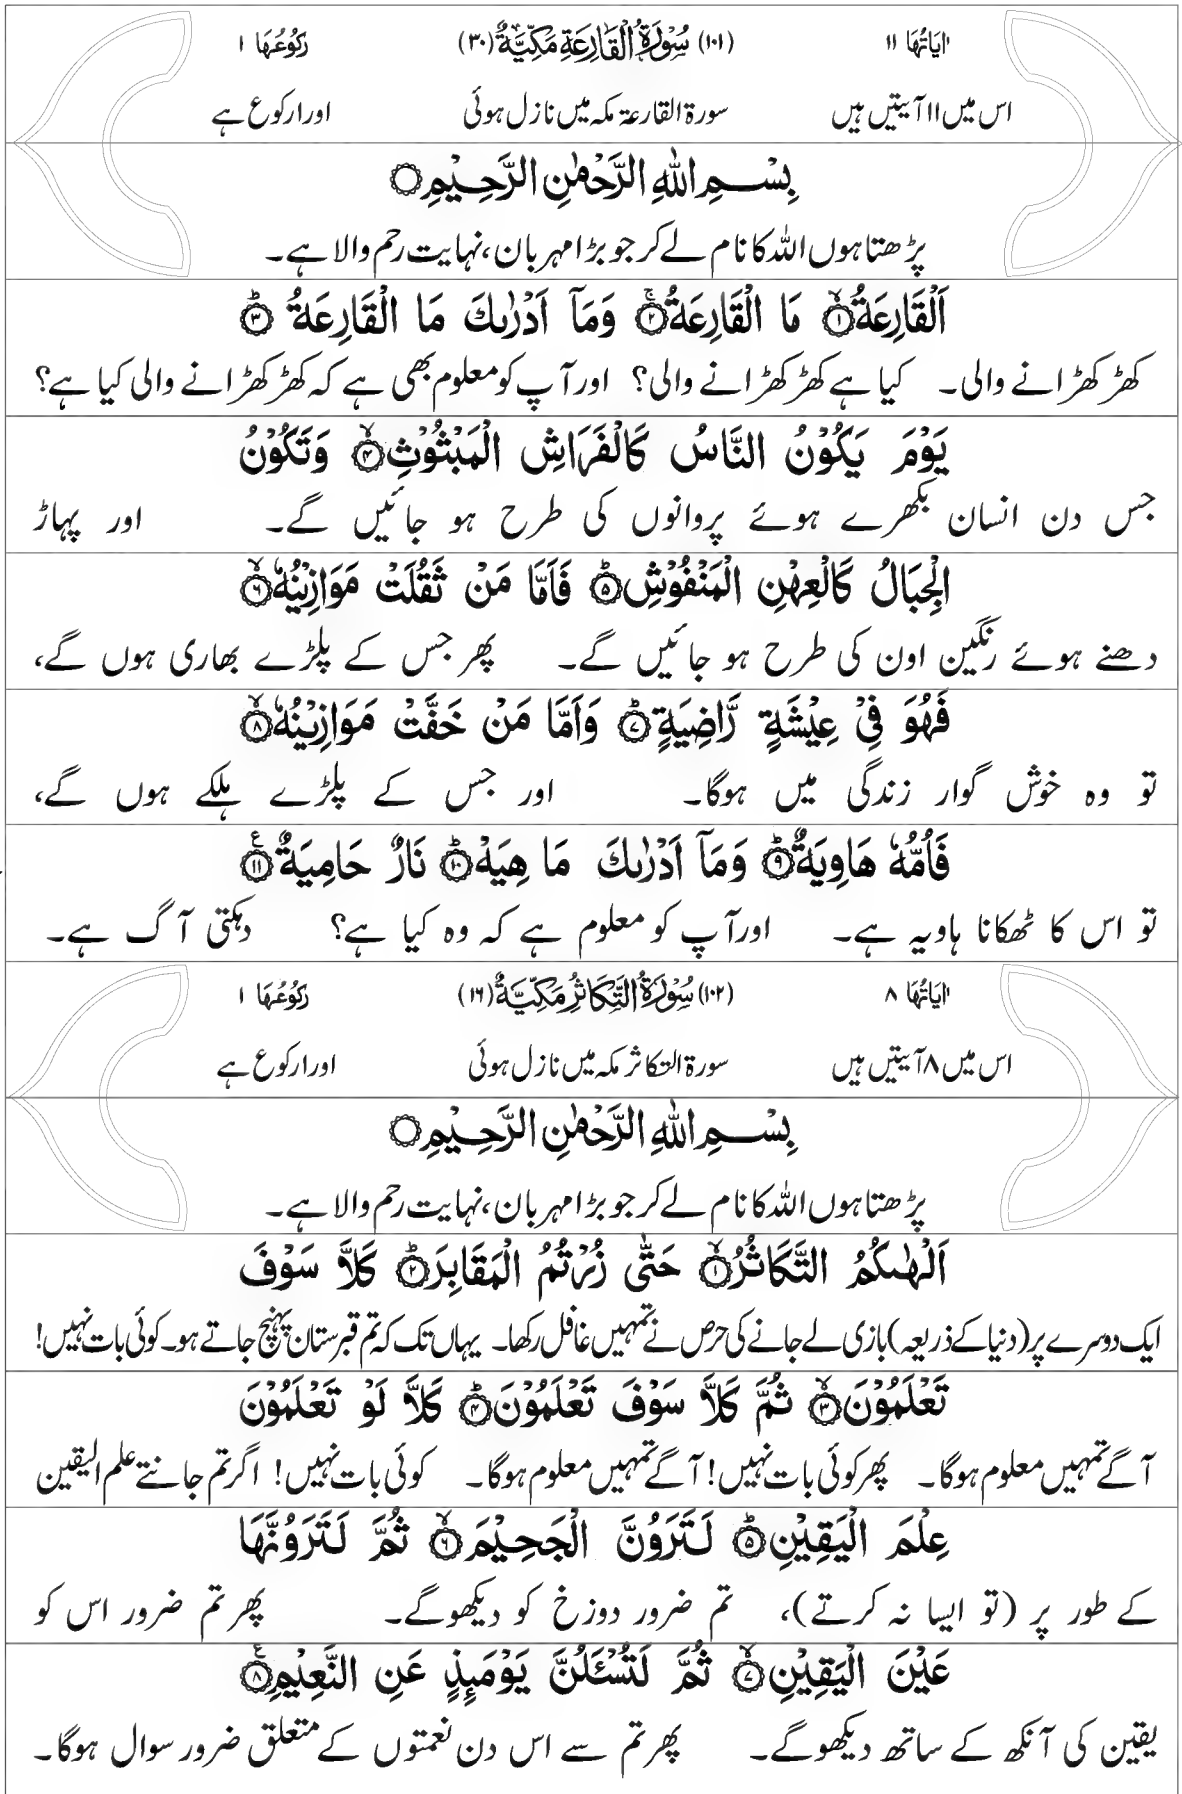 اٰيَاتُهَا ١١ (١٠١) سُوْرَةُ الْقَارِعَةِ مَكِّيَّةٌ (٣٠) رُكُوْعُهَا ١
اس میں ۱۱ آیتیں ہیں سورۃ القارعۃ مکہ میں نازل ہوئی اور ۱ رکوع ہے
بِسْمِ اللّٰهِ الرَّحْمٰنِ الرَّحِيْمِ
پڑھتا ہوں اللہ کا نام لے کر جو بڑا مہربان، نہایت رحم والا ہے۔
اَلْقَارِعَةُ ۙ﴿١﴾ مَا الْقَارِعَةُ ۚ﴿٢﴾ وَمَآ اَدْرٰىكَ مَا الْقَارِعَةُ ؕ﴿٣﴾
کھڑکھڑانے والی۔ کیا ہے کھڑکھڑانے والی؟ اور آپ کو معلوم بھی ہے کہ کھڑکھڑانے والی کیا ہے؟
يَوْمَ يَكُوْنُ النَّاسُ كَالْفَرَاشِ الْمَبْثُوْثِ ۙ﴿٤﴾ وَتَكُوْنُ
جس دن انسان بکھرے ہوئے پروانوں کی طرح ہو جائیں گے۔ اور پہاڑ
الْجِبَالُ كَالْعِهْنِ الْمَنْفُوْشِ ؕ﴿٥﴾ فَاَمَّا مَنْ ثَقُلَتْ مَوَازِيْنُهٗ ۙ﴿٦﴾
دھنے ہوئے رنگین اون کی طرح ہو جائیں گے۔ پھر جس کے پلڑے بھاری ہوں گے،
فَهُوَ فِيْ عِيْشَةٍ رَّاضِيَةٍ ؕ﴿٧﴾ وَاَمَّا مَنْ خَفَّتْ مَوَازِيْنُهٗ ۙ﴿٨﴾
تو وہ خوش گوار زندگی میں ہوگا۔ اور جس کے پلڑے ہلکے ہوں گے،
فَاُمُّهٗ هَاوِيَةٌ ؕ﴿٩﴾ وَمَآ اَدْرٰىكَ مَا هِيَهْ ؕ﴿١٠﴾ نَارٌ حَامِيَةٌ ۠﴿١١﴾
تو اس کا ٹھکانا ہاویہ ہے۔ اور آپ کو معلوم ہے کہ وہ کیا ہے؟ دہکتی آگ ہے۔
اٰيَاتُهَا ٨ (١٠٢) سُوْرَةُ التَّكَاثُرِ مَكِّيَّةٌ (١٦) رُكُوْعُهَا ١
اس میں ۸ آیتیں ہیں سورۃ التکاثر مکہ میں نازل ہوئی اور ۱ رکوع ہے
بِسْمِ اللّٰهِ الرَّحْمٰنِ الرَّحِيْمِ
پڑھتا ہوں اللہ کا نام لے کر جو بڑا مہربان، نہایت رحم والا ہے۔
اَلْهٰىكُمُ التَّكَاثُرُ ۙ﴿١﴾ حَتّٰى زُرْتُمُ الْمَقَابِرَ ؕ﴿٢﴾ كَلَّا سَوْفَ
ایک دوسرے پر (دنیا کے ذریعہ) بازی لے جانے کی حرص نے تمہیں غافل رکھا۔ یہاں تک کہ تم قبرستان پہنچ جاتے ہو۔ کوئی بات نہیں!
تَعْلَمُوْنَ ۙ﴿٣﴾ ثُمَّ كَلَّا سَوْفَ تَعْلَمُوْنَ ؕ﴿٤﴾ كَلَّا لَوْ تَعْلَمُوْنَ
آگے تمہیں معلوم ہوگا۔ پھر کوئی بات نہیں! آگے تمہیں معلوم ہوگا۔ کوئی بات نہیں! اگر تم جانتے علم الیقین
عِلْمَ الْيَقِيْنِ ؕ﴿٥﴾ لَتَرَوُنَّ الْجَحِيْمَ ۙ﴿٦﴾ ثُمَّ لَتَرَوُنَّهَا
کے طور پر (تو ایسا نہ کرتے)، تم ضرور دوزخ کو دیکھوگے۔ پھر تم ضرور اس کو
عَيْنَ الْيَقِيْنِ ۙ﴿٧﴾ ثُمَّ لَتُسْـَٔلُنَّ يَوْمَىِٕذٍ عَنِ النَّعِيْمِ ۠﴿٨﴾
یقین کی آنکھ کے ساتھ دیکھوگے۔ پھر تم سے اس دن نعمتوں کے متعلق ضرور سوال ہوگا۔